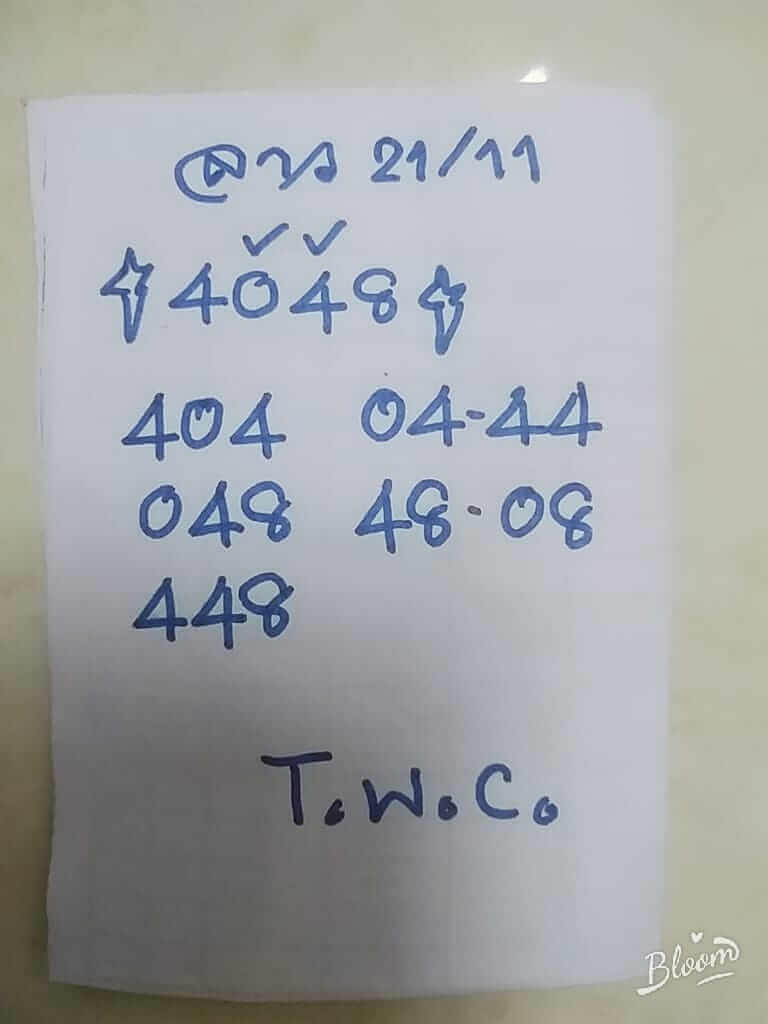 ลาว 21/11
4048
404 04-44
048 48-08
448
T.W.C.
Bloom